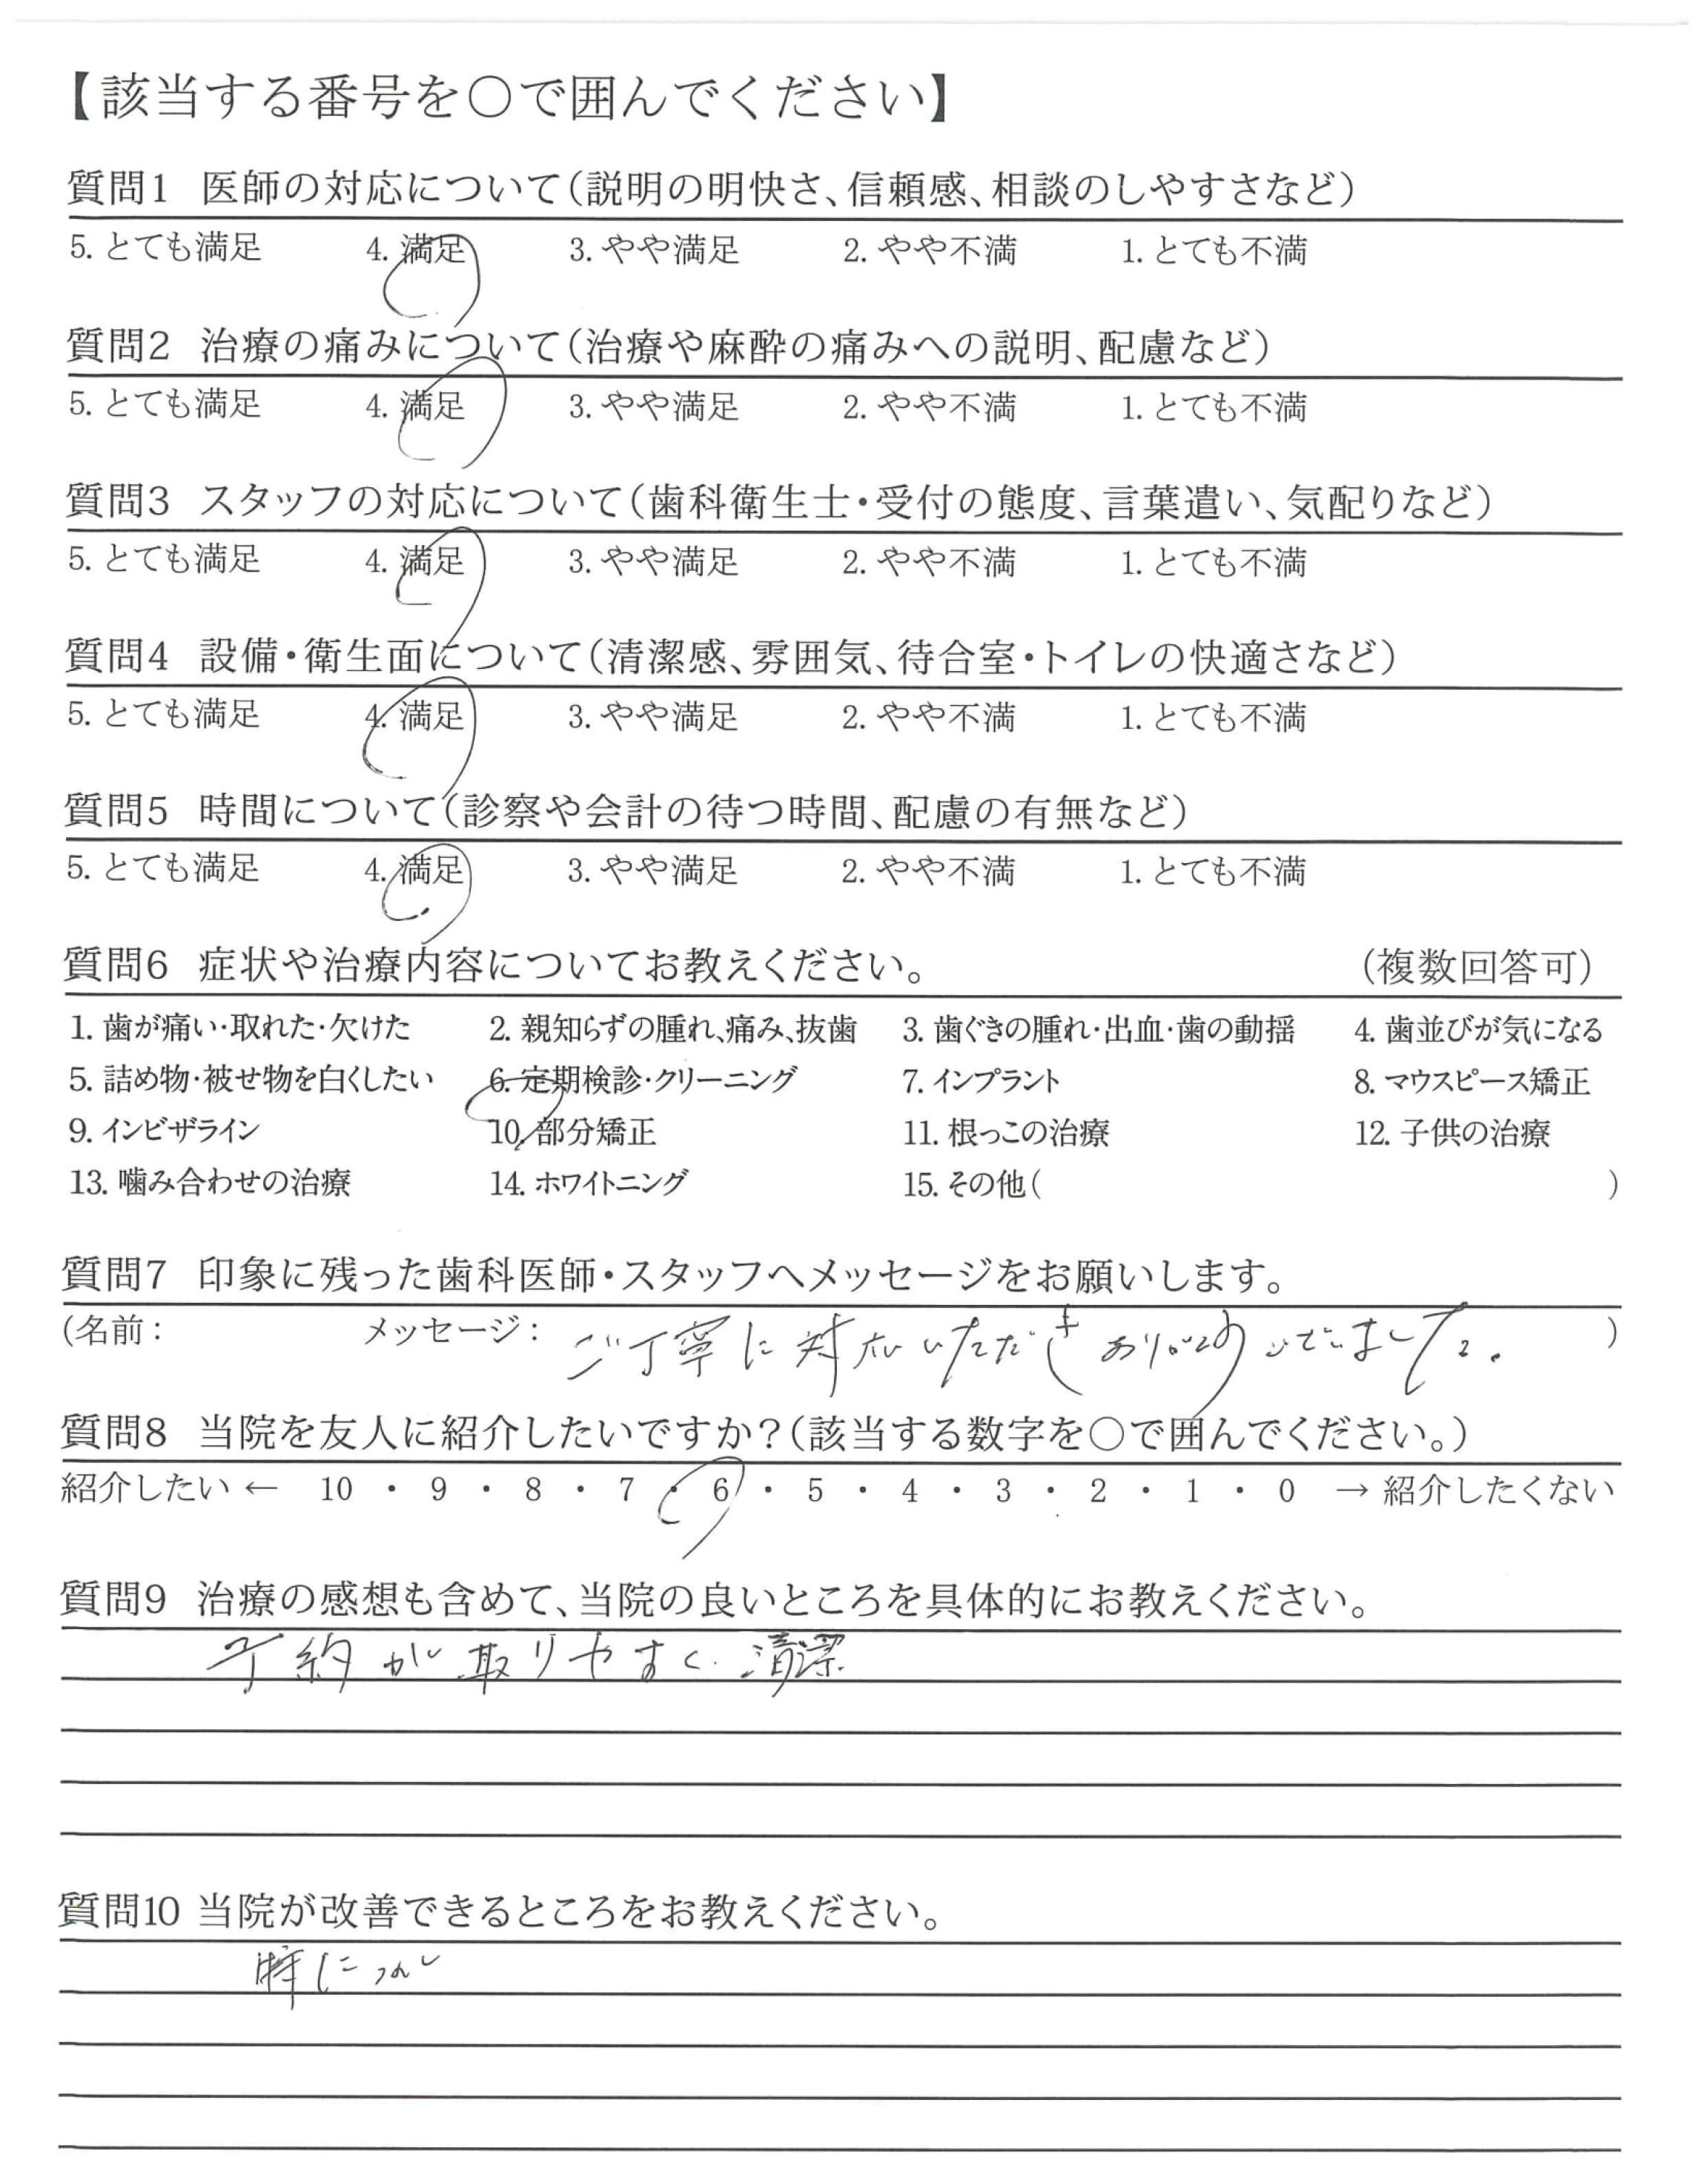 【該当する番号を〇で囲んでください】
質問1 医師の対応について(説明の明快さ、信頼感、相談のしやすさなど)
5. とても満足 4. 満足 3. やや満足 2. やや不満 1. とても不満
質問2 治療の痛みについて(治療や麻酔の痛みへの説明、配慮など)
5. とても満足 4. 満足 3. やや満足 2. やや不満 1. とても不満
質問3 スタッフの対応について(歯科衛生士・受付の態度、言葉遣い、気配りなど)
5. とても満足 4. 満足 3. やや満足 2. やや不満 1. とても不満
質問4 設備・衛生面について(清潔感、雰囲気、待合室・トイレの快適さなど)
5. とても満足 4. 満足 3. やや満足 2. やや不満 1. とても不満
質問5 時間について(診察や会計の待つ時間、配慮の有無など)
5. とても満足 4. 満足 3. やや満足 2. やや不満 1. とても不満
質問6 症状や治療内容についてお教えください。 (複数回答可)
1. 歯が痛い・取れた・欠けた 2. 親知らずの腫れ、痛み、抜歯 3. 歯ぐきの腫れ・出血・歯の動揺 4. 歯並びが気になる
5. 詰め物・被せ物を白くしたい 6. 定期検診・クリーニング 7. インプラント 8. マウスピース矯正
9. インビザライン 10. 部分矯正 11. 根っこの治療 12. 子供の治療
13. 噛み合わせの治療 14. ホワイトニング 15. その他( )
質問7 印象に残った歯科医師・スタッフへメッセージをお願いします。
(名前: メッセージ: ご丁寧に対応いただきありがとうございました。 )
質問8 当院を友人に紹介したいですか?(該当する数字を〇で囲んでください。)
紹介したい ← 10 ・ 9 ・ 8 ・ 7 ・ 6 ・ 5 ・ 4 ・ 3 ・ 2 ・ 1 ・ 0 → 紹介したくない
質問9 治療の感想も含めて、当院の良いところを具体的にお教えください。
予約が取りやすく、清潔
質問10 当院が改善できるところをお教えください。
特になし